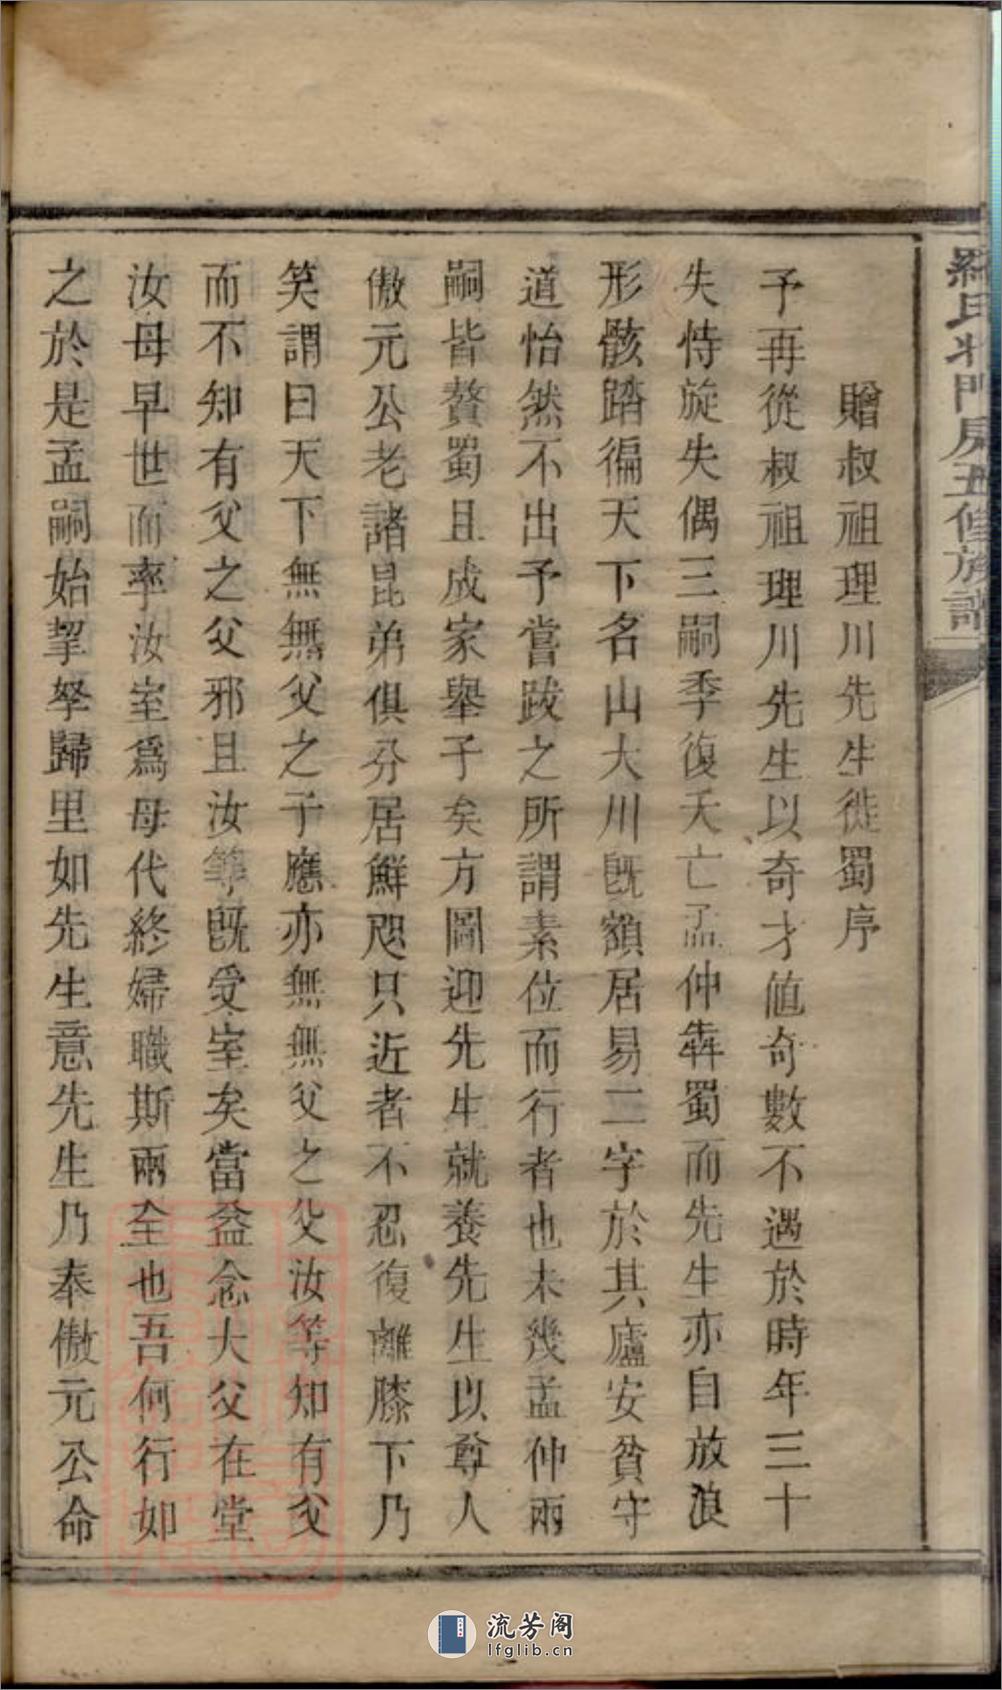 羅氏北門房五修族譜
贈叔祖理川先生徙蜀序
予再從叔祖理川先生以奇才値奇數不遇於時年三十
失恃旋失偶三嗣季復夭亡孟仲犇蜀而先生亦自放浪
形骸踏徧天下名山大川旣額居易二字於其廬安貧守
道怡然不出予嘗跋之所謂素位而行者也未幾孟仲兩
嗣皆贅蜀且成家舉子矣方圖迎先生就養先生以尊人
傲元公老諸昆弟俱分居鮮咫只近者不忍復離膝下乃
笑謂曰天下無無父之子應亦無無父之父汝等知有父
而不知有父之父邪且汝等旣受室矣當益念大父在堂
汝母早世而率汝室爲母代終婦職斯兩全也吾何行如
之於是孟嗣始挈孥歸里如先生意先生乃奉傲元公命
流芳阁
lfglib.cn